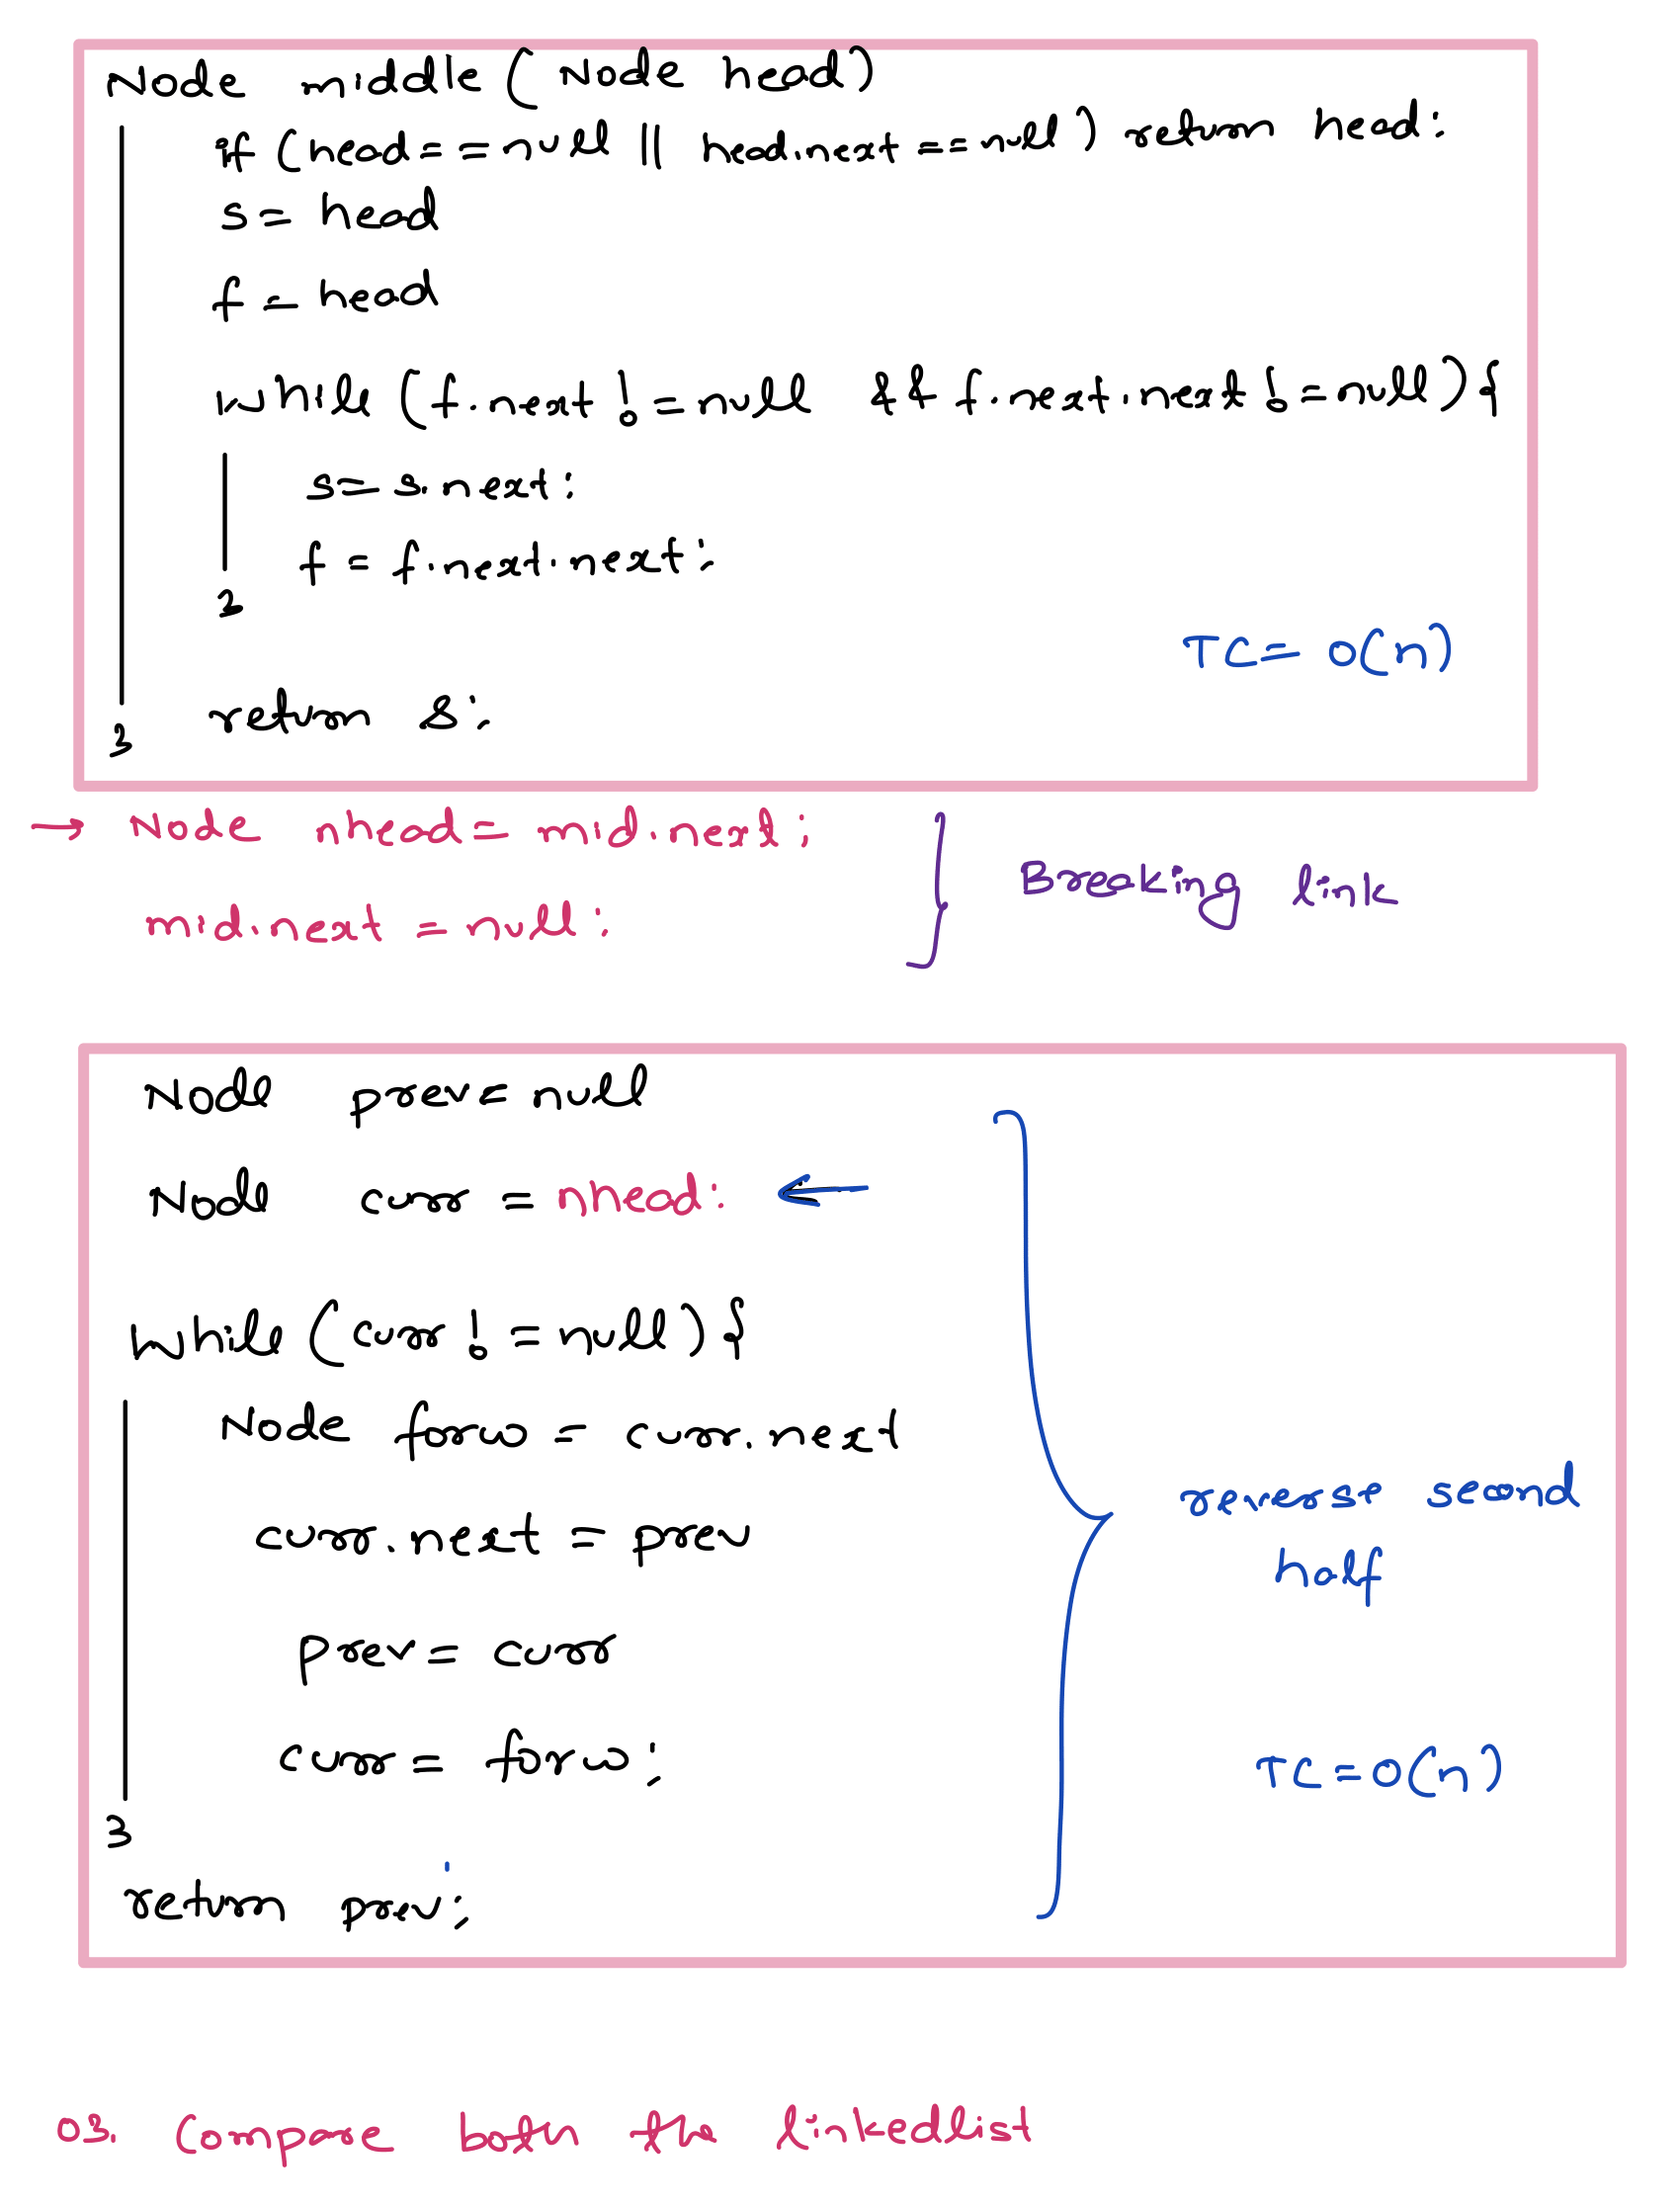 Node middle ( Node head)
if (head == null || head.next == null ) return head;
s = head
f = head
while (f.next != null && f.next.next != null) {
s = s.next;
f = f.next.next;
}
TC = O(n)
return s;
}
→ Node nhead = mid.next;
mid.next = null;
Breaking link
Node prev = null
Node curr = nhead; ←
while (curr != null) {
Node forw = curr.next
curr.next = prev
reverse second
half
prev = curr
curr = forw;
TC = O(n)
}
return prev;
03. Compare both the linkedlist